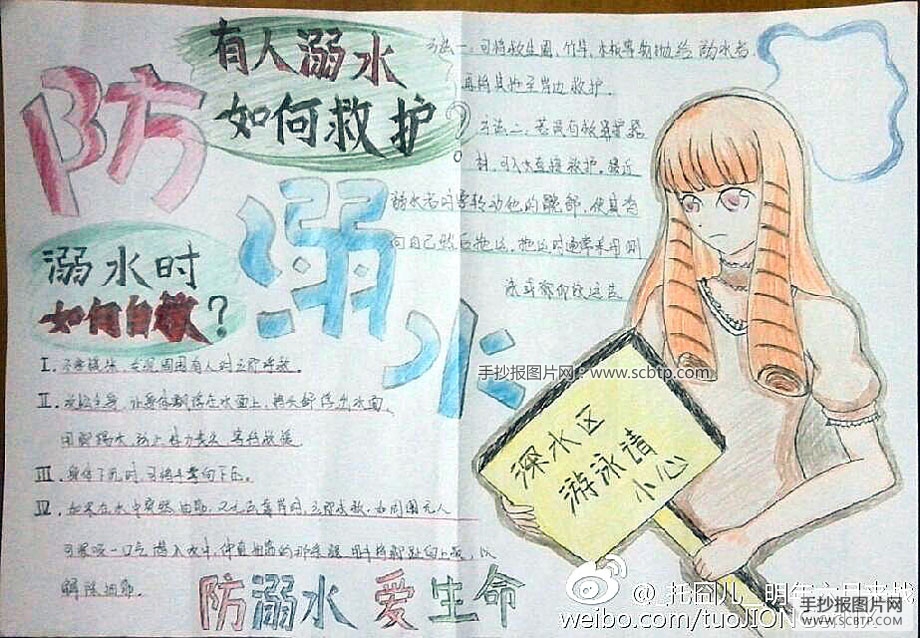 防溺水
有人溺水
如何救护？
方法一：可将救生圈、竹竿、木板等物抛给溺水者
再将其拖至岸边救护.
方法二：若没有救护器
材，可入水直接救护。接近
溺水者时要转动他的髋部，使其背
向自己然后拖运。拖运时通常采用侧
溺水时
如何自救？
I. 不要慌张，发现周围有人时立即呼救。
II. 放松全身，让身体飘浮在水面上，将头部浮出水面，
用脚踢水，防止体力丧失，等待救援
III. 身体下沉时，可将手掌向下压.
IV. 如果在水中突然抽筋，又无法靠岸时，立即求救。如周围无人
可深吸一口气潜入水中，伸直抽筋的那条腿，用手将脚趾向上扳，以
解除抽筋。
深水区
游泳请
小心
防溺水 爱生命
手抄报图片网：www.scbtp.com
weibo.com/tuoJION
手抄报图片网
WWW.SCBTP.COM